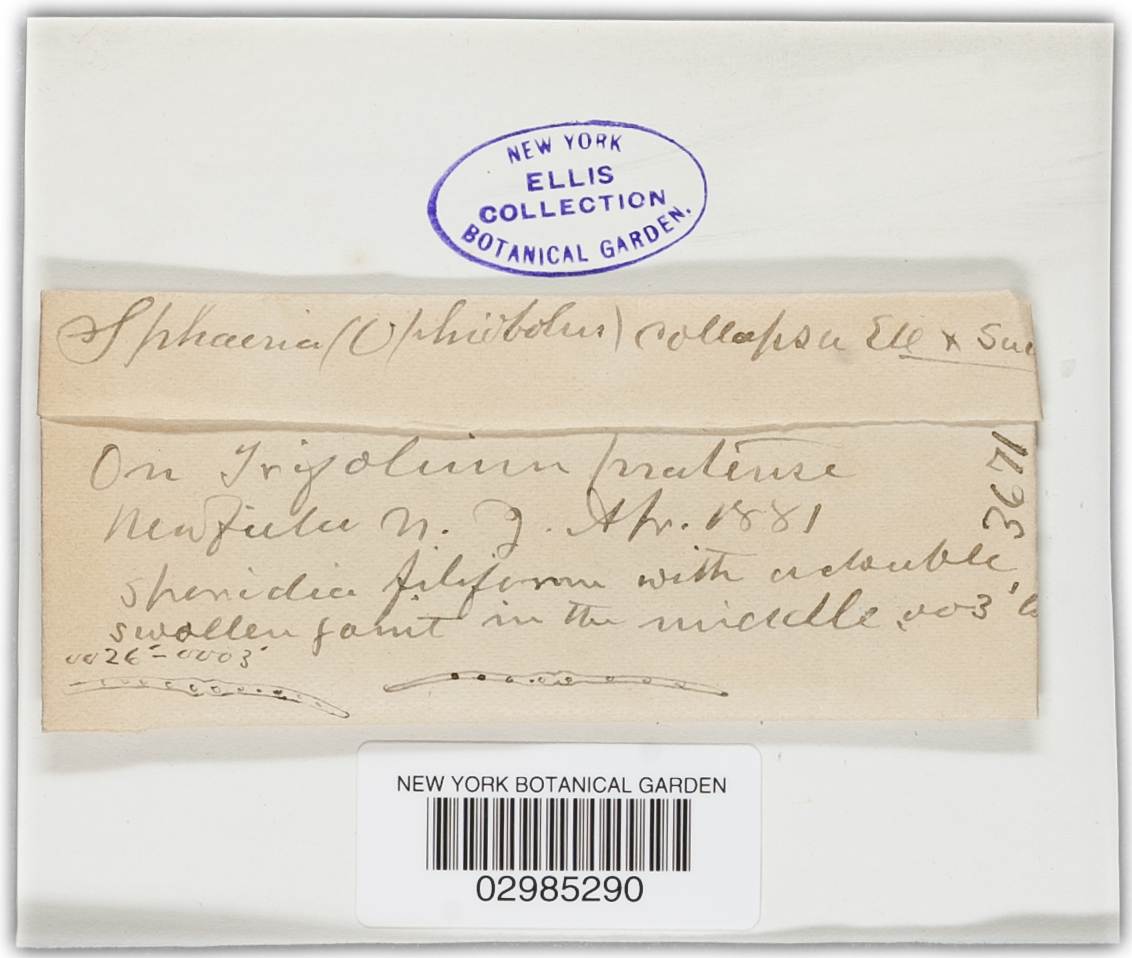 NEW YORK
ELLIS
COLLECTION
BOTANICAL GARDEN.
Sphaeria (Ophiobolus) collapsa Ell & Sac
On Trifolium pratense
Newfield N. J. Apr. 1881
3671
sporidia filiform with a double
swollen joint in the middle .003'
0026'-0003'
NEW YORK BOTANICAL GARDEN
02985290